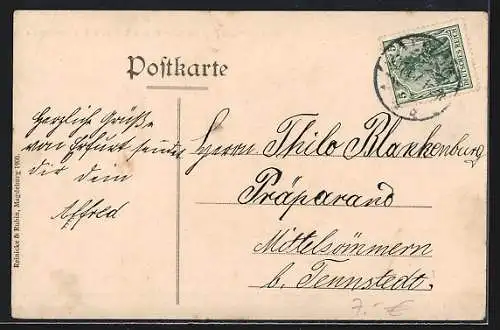 Postkarte
Herzliche Grüße
von Erfurt sendet
dir dein
Alfred
Herrn Thilo Blankenburg
Präparand
Mittelsömmern
b. Tennstedt.
Reinicke & Rubin, Magdeburg 1906.
DEUTSCHES REICH
5
7.- €